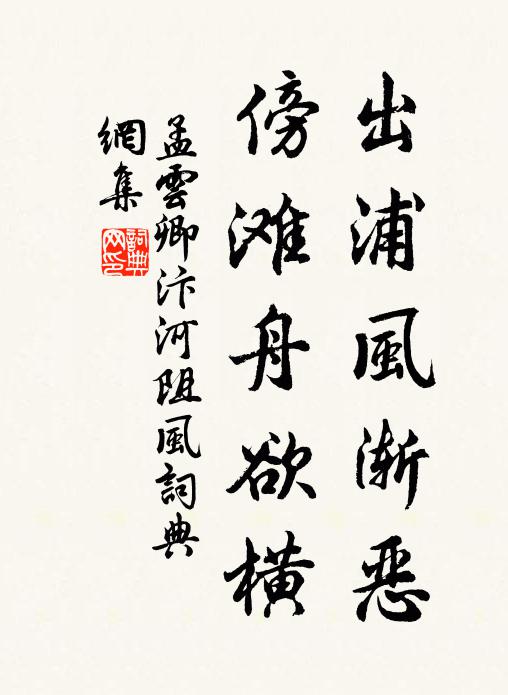 出浦風渐恶
傍滩舟欲橫
孟雲卿汴河阻風詞典
網集
詞典
网印